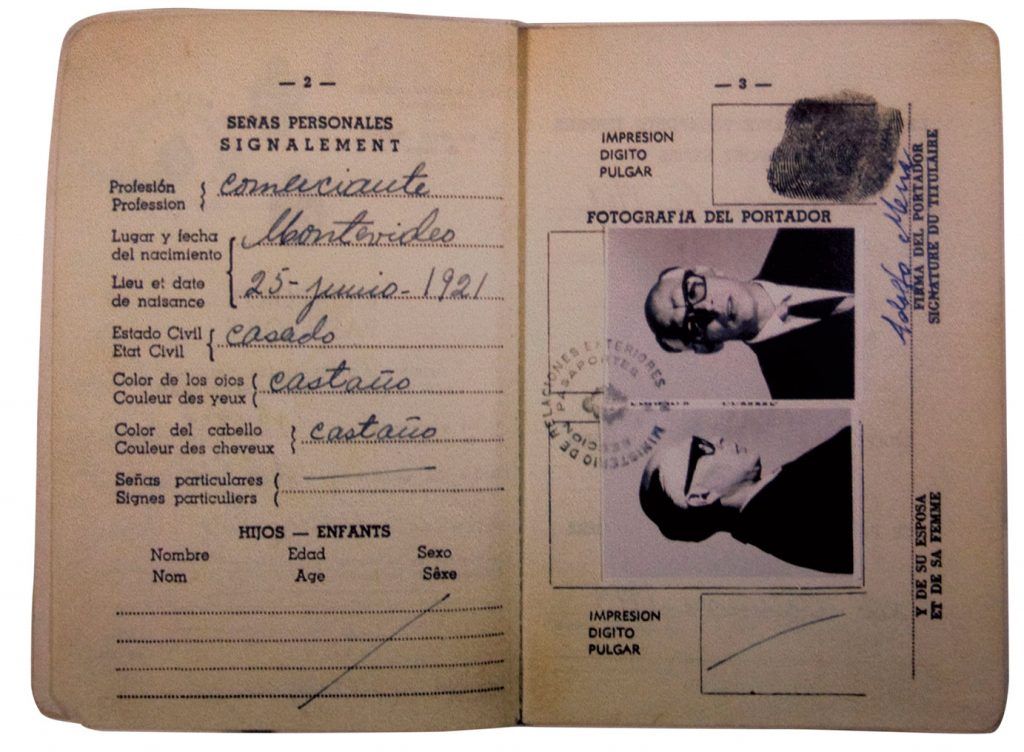 — 2 —
SEÑAS PERSONALES
SIGNALEMENT
Profesión
Profession
comerciante
Lugar y fecha
del nacimiento
Montevideo
Lieu et date
de naisance
25-junio-1921
Estado Civil
Etat Civil
casado
Color de los ojos
Couleur des yeux
castaño
Color del cabello
Couleur des cheveux
castaño
Señas particulares
Signes particuliers
HIJOS — ENFANTS
Nombre Edad Sexo
Nom Age Sêxe
— 3 —
IMPRESION
DIGITO
PULGAR
FOTOGRAFIA DEL PORTADOR
MINISTERIO DE RELACIONES EXTERIORES
SECCION PASAPORTES
Adolfo Mena
FIRMA DEL PORTADOR
SIGNATURE DU TITULAIRE
Y DE SU ESPOSA
ET DE SA FEMME
IMPRESION
DIGITO
PULGAR